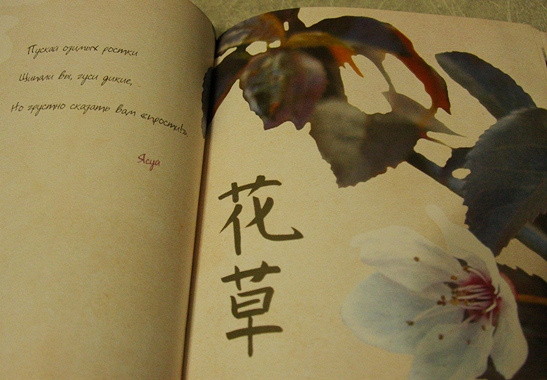 Пускай озимых ростки
Щипали вы, гуси дикие,
Но грустно сказать вам «прости!».
Ясуа
花
草